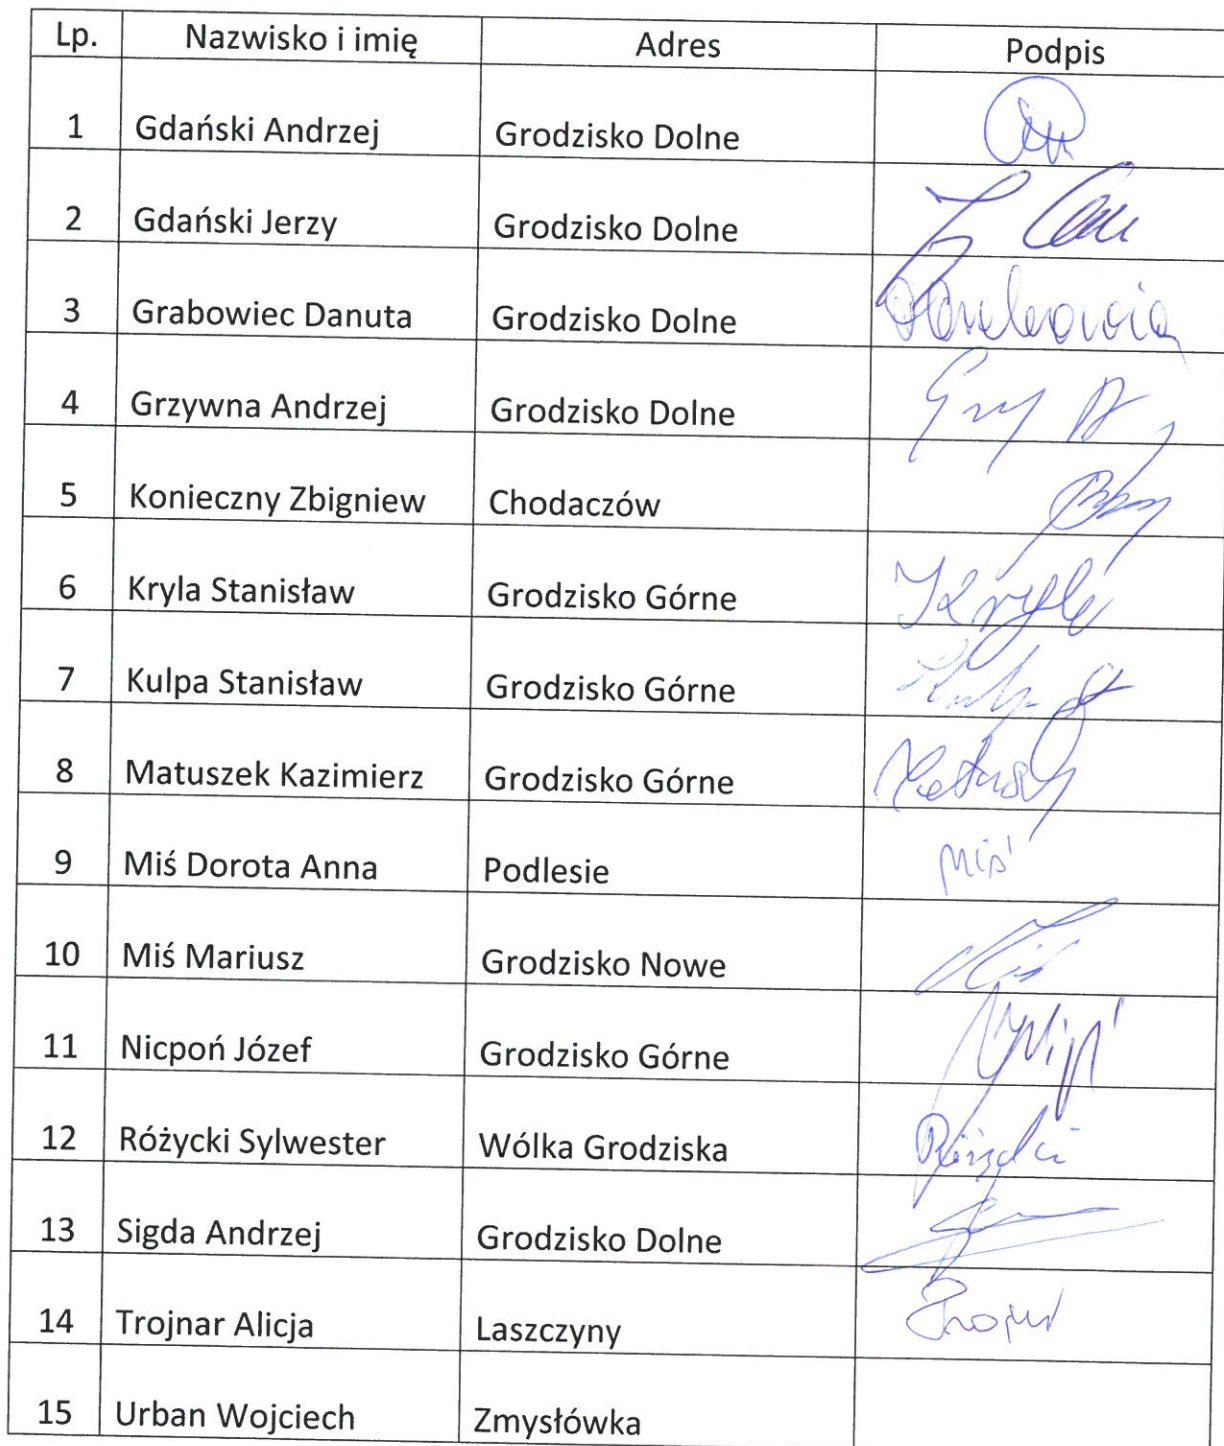 Lp. Nazwisko i imię Adres Podpis
1 Gdański Andrzej Grodzisko Dolne
2 Gdański Jerzy Grodzisko Dolne
3 Grabowiec Danuta Grodzisko Dolne
4 Grzywna Andrzej Grodzisko Dolne
5 Konieczny Zbigniew Chodaczów
6 Kryla Stanisław Grodzisko Górne
7 Kulpa Stanisław Grodzisko Górne
8 Matuszek Kazimierz Grodzisko Górne
9 Miś Dorota Anna Podlesie Miś
10 Miś Mariusz Grodzisko Nowe Miś
11 Nicpoń Józef Grodzisko Górne
12 Różycki Sylwester Wólka Grodziska
13 Sigda Andrzej Grodzisko Dolne
14 Trojnar Alicja Laszczyny
15 Urban Wojciech Zmysłówka